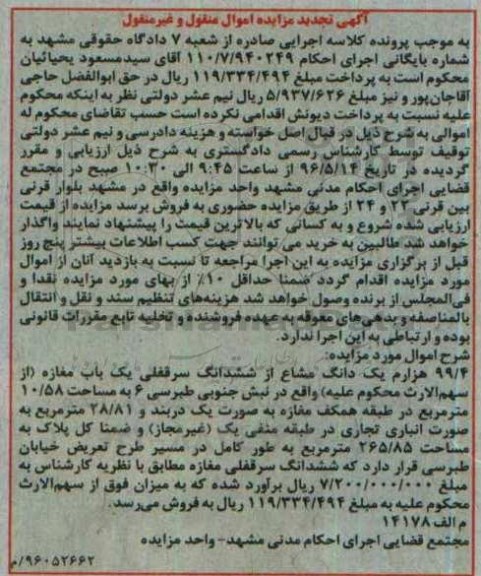 آگهی تجدید مزایده اموال منقول و غیرمنقول
به موجب پرونده کلاسه اجرایی صادره از شعبه ۷ دادگاه حقوقی مشهد به
شماره بایگانی اجرای احکام ۱۱۰/۷/۹۴۰۲۴۹ آقای سیدمسعود یحیائیان
محکوم است به پرداخت مبلغ ۱۱۹/۳۳۴/۴۹۴ ریال در حق ابوالفضل حاجی
آقاجان‌پور و نیز مبلغ ۵/۹۳۷/۶۲۶ ریال نیم عشر دولتی نظر به اینکه محکوم
علیه نسبت به پرداخت دیونش اقدامی نکرده است حسب تقاضای محکوم له
اموالی به شرح ذیل در قبال اصل خواسته و هزینه دادرسی و نیم عشر دولتی
توقیف توسط کارشناس رسمی دادگستری به شرح ذیل ارزیابی و مقرر
گردیده در تاریخ ۹۶/۵/۱۴ از ساعت ۹:۴۵ الی ۱۰:۳۰ صبح در مجتمع
قضایی اجرای احکام مدنی مشهد واحد مزایده واقع در مشهد بلوار قرنی
بین قرنی ۲۲ و ۲۴ از طریق مزایده حضوری به فروش برسد مزایده از قیمت
ارزیابی شده شروع و به کسانی که بالاترین قیمت را پیشنهاد نمایند واگذار
خواهد شد طالبین به خرید می توانند جهت کسب اطلاعات بیشتر پنج روز
قبل از برگزاری مزایده به این اجرا مراجعه تا نسبت به بازدید آنان از اموال
مورد مزایده اقدام گردد ضمنا حداقل ۱۰٪ از بهای مورد مزایده نقدا و
فی‌المجلس از برنده وصول خواهد شد هزینه‌های تنظیم سند و نقل و انتقال
بالمناصفه و بدهی‌های معوقه به عهده فروشنده و تخلیه تابع مقررات قانونی
بوده و ارتباطی به این اجرا ندارد.
شرح اموال مورد مزایده:
۹۹/۴ هزارم یک دانگ مشاع از ششدانگ سرقفلی یک باب مغازه (از
سهم‌الارث محکوم علیه) واقع در نبش جنوبی طبرسی ۶ به مساحت ۱۰/۵۸
مترمربع در طبقه همکف مغازه به صورت یک دربند و ۲۸/۸۱ مترمربع به
صورت انباری تجاری در طبقه منفی یک (غیرمجاز) و ضمنا کل پلاک به
مساحت ۲۶۵/۸۵ مترمربع به طور کامل در مسیر طرح تعریض خیابان
طبرسی قرار دارد که ششدانگ سرقفلی مغازه مطابق با نظریه کارشناس به
مبلغ ۷/۲۰۰/۰۰۰/۰۰۰ ریال برآورد شده که به میزان فوق از سهم‌الارث
محکوم علیه به مبلغ ۱۱۹/۳۳۴/۴۹۴ ریال به فروش می‌رسد.
م الف ۱۴۱۷۸
مجتمع قضایی اجرای احکام مدنی مشهد- واحد مزایده
۹۶۰۵۲۶۶۲/م